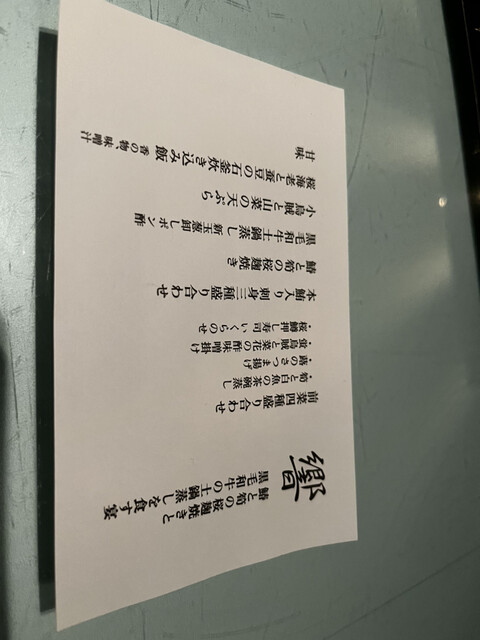 響
鰆と筍の桜麹焼きと
黒毛和牛の土鍋蒸しを食す宴
前菜四種盛り合わせ
・筍と白魚の茶碗蒸し
・蕗のさつま揚げ
・蛍烏賊と菜花の酢味噌掛け
・桜鱒押し寿司いくらのせ
本鮪入り刺身三種盛り合わせ
鰆と筍の桜麹焼き
黒毛和牛土鍋蒸し 新玉葱卸しポン酢
小烏賊と山菜の天ぷら
桜海老と蚕豆の石釜炊き込み飯
香の物・味噌汁
甘味